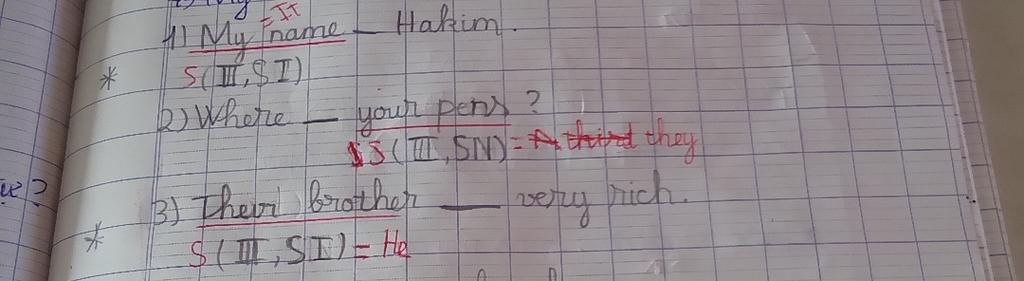 = It
1) My name _ Hakim.
* S(III, SI)
2) Where _ your pens?
S(III, SN) = they
3) Their brother _ very rich.
* S(III, SI) = He